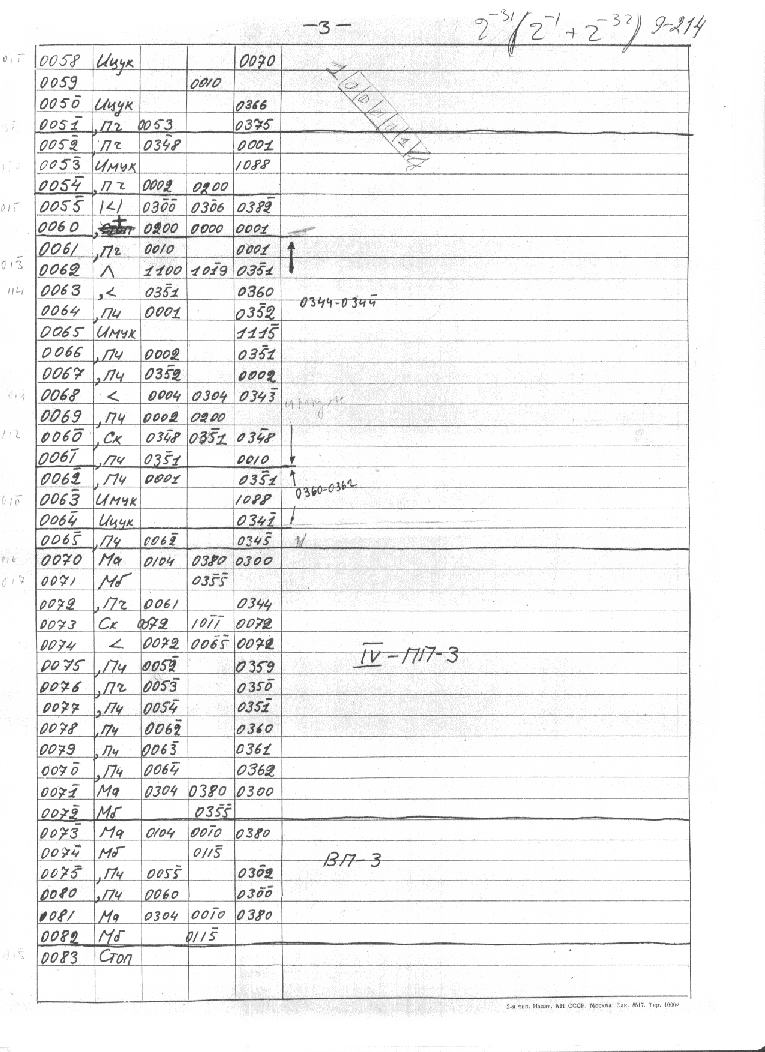 —3—
2⁻³¹(2⁻¹ + 2⁻³²) 9-214
0058 Ицук 0070
0059 0010
0050̄ Ицук 0366
0051̄ ,Пч 0053 0375
0052̄ ,Пч 034̄8 0001
0053̄ Имук 1088
0054̄ ,Пч 0002 0200
0055̄ |<| 030̄0̄ 030̄6 0382̄
0060 ,+ 0200 0000 0001
0061 ,Пч 0010 0001
0062 Λ 1100 101̄9 035̄1
0063 ,< 035̄1 0360
0064 ,Пч 0001 035̄2 0344-0344̄
0065 Имук 1115̄
0066 ,Пч 0002 035̄1
0067 ,Пч 035̄2 0002
0068 < 0004 0304 0343̄
0069 ,Пч 0002 0200
0060̄ ,Ск 034̄8 035̄1 034̄8
0061̄ ,Пч 035̄1 0010
0062̄ ,Пч 0001 035̄1 0360-0362
0063̄ Имук 1088
0064̄ Ицук 0341̄
0065̄ ,Пч 0062̄ 0345̄
0070 Ма 0104 0380 0300
0071 Мб 035̄5̄
0072 ,Пч 0061 0344
0073 Ск 0072 101̄1̄ 0072
0074 < 0072 0065̄ 0072
IV-ПП-3
0075 ,Пч 0052̄ 0359
0076 ,Пч 0053̄ 0350̄
0077 ,Пч 0054̄ 0351̄
0078 ,Пч 0062̄ 0360
0079 ,Пч 0063̄ 0361
0070̄ ,Пч 0064̄ 0362
0071̄ Ма 0304 0380 0300
0072̄ Мб 035̄5̄
0073̄ Ма 0104 001̄0 0380
0074̄ Мб 0115̄
ВП-3
0075̄ ,Пч 0055̄ 030̄2
0080 ,Пч 0060 030̄0̄
0081 Ма 0304 001̄0 0380
0082 Мб 0115̄
0083 Стоп